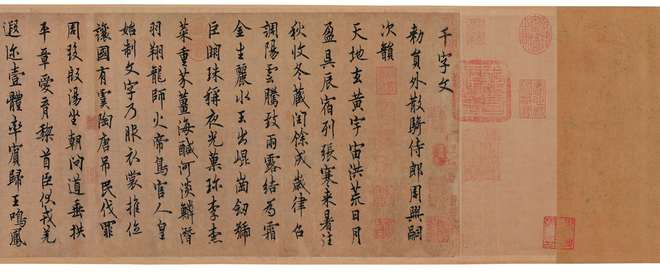 千字文
勅員外散騎侍郎周興嗣
次韻
天地玄黃宇宙洪荒日月
盈昃辰宿列張寒来暑往
秋收冬藏閏餘成歲律吕
調陽雲騰致雨露結為霜
金生麗水玉出崐崗劒號
巨闕珠稱夜光菓珎李柰
菜重芥薑海鹹河淡鱗潛
羽翔龍師火帝鳥官人皇
始制文字乃服衣裳推位
讓國有虞陶唐吊民伐罪
周發殷湯坐朝問道垂拱
平章愛育黎首臣伏戎羌
遐迩壹體率賓歸王鳴鳳